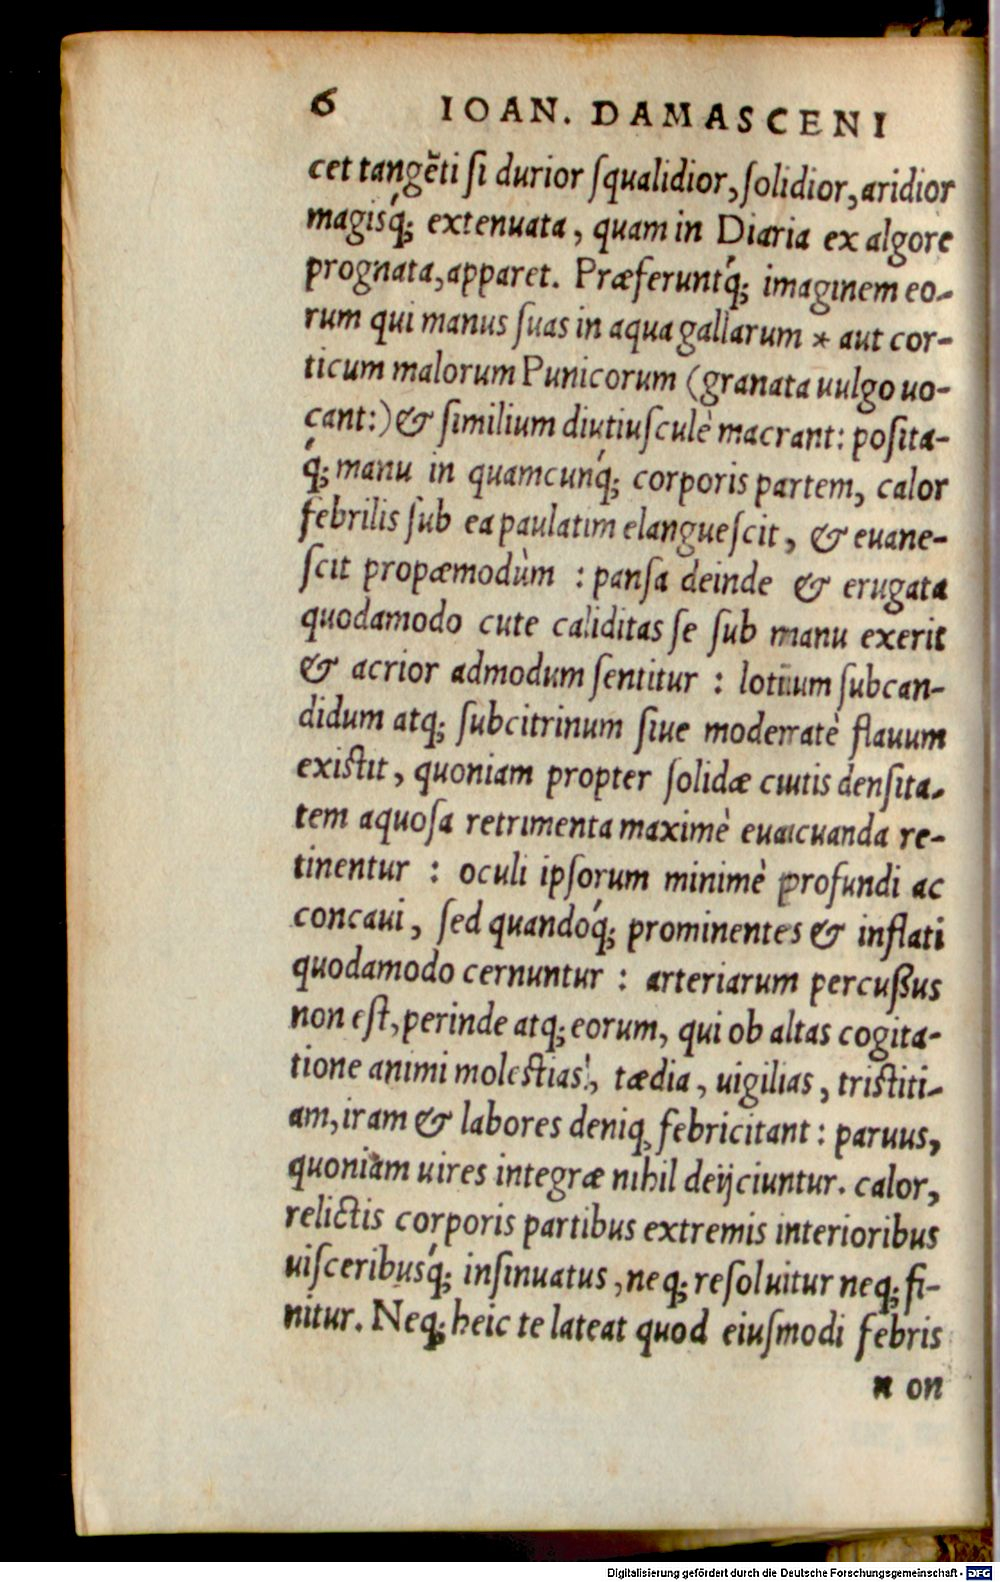 6 IOAN. DAMASCENI
cet tangẽti si durior ſqualidior, ſolidior, aridior
magisq́; extenuata, quam in Diaria ex algore
prognata, apparet. Præferuntq́; imaginem eo-
rum qui manus ſuas in aqua gallarum * aut cor-
ticum malorum Punicorum (granata uulgo uo-
cant:) & ſimilium diutiuſculè macrant: poſita-
q́; manu in quamcunq́; corporis partem, calor
febrilis ſub ea paulatim elangueſcit, & euane-
ſcit propæmodùm : panſa deinde & erugata
quodamodo cute caliditas ſe ſub manu exerit
& acrior admodum ſentitur : lotium ſubcan-
didum atq; ſubcitrinum ſiue moderatè flauum
exiſtit, quoniam propter ſolidæ cutis denſita-
tem aquoſa retrimenta maximè euacuanda re-
tinentur : oculi ipſorum minimè profundi ac
concaui, ſed quandoq́; prominentes & inflati
quodamodo cernuntur : arteriarum percußus
non eſt, perinde atq; eorum, qui ob altas cogita-
tione animi moleſtias, tædia, uigilias, triſtiti-
am, iram & labores deniq; febricitant : paruus,
quoniam uires integræ nihil deijciuntur. calor,
relictis corporis partibus extremis interioribus
uiſceribusq́; inſinuatus, neq; reſoluitur neq; fi-
nitur. Neq; heic te lateat quod eiuſmodi febris
n on
Digitalisierung gefördert durch die Deutsche Forschungsgemeinschaft - DFG